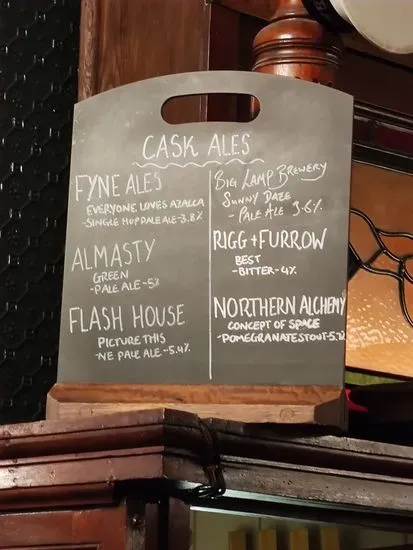 CASK ALES
FYNE ALES
EVERYONE LOVES AZALLA
-SINGLE HOP PALE ALE-3.8%
ALMASTY
GREEN
-PALE ALE-5%
FLASH HOUSE
PICTURE THIS
-NE PALE ALE-5.4%
BIG LAMP BREWERY
SUNNY DAZE
-PALE ALE 3.6%
RIGG + FURROW
BEST
-BITTER-4%
NORTHERN ALCHEMY
CONCEPT OF SPACE
-POMEGRANATE STOUT-